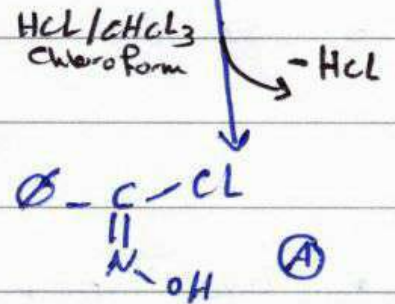 HCL/CHCL3
Chloroform
- HCL
Ø - C - CL
||
N - OH
A